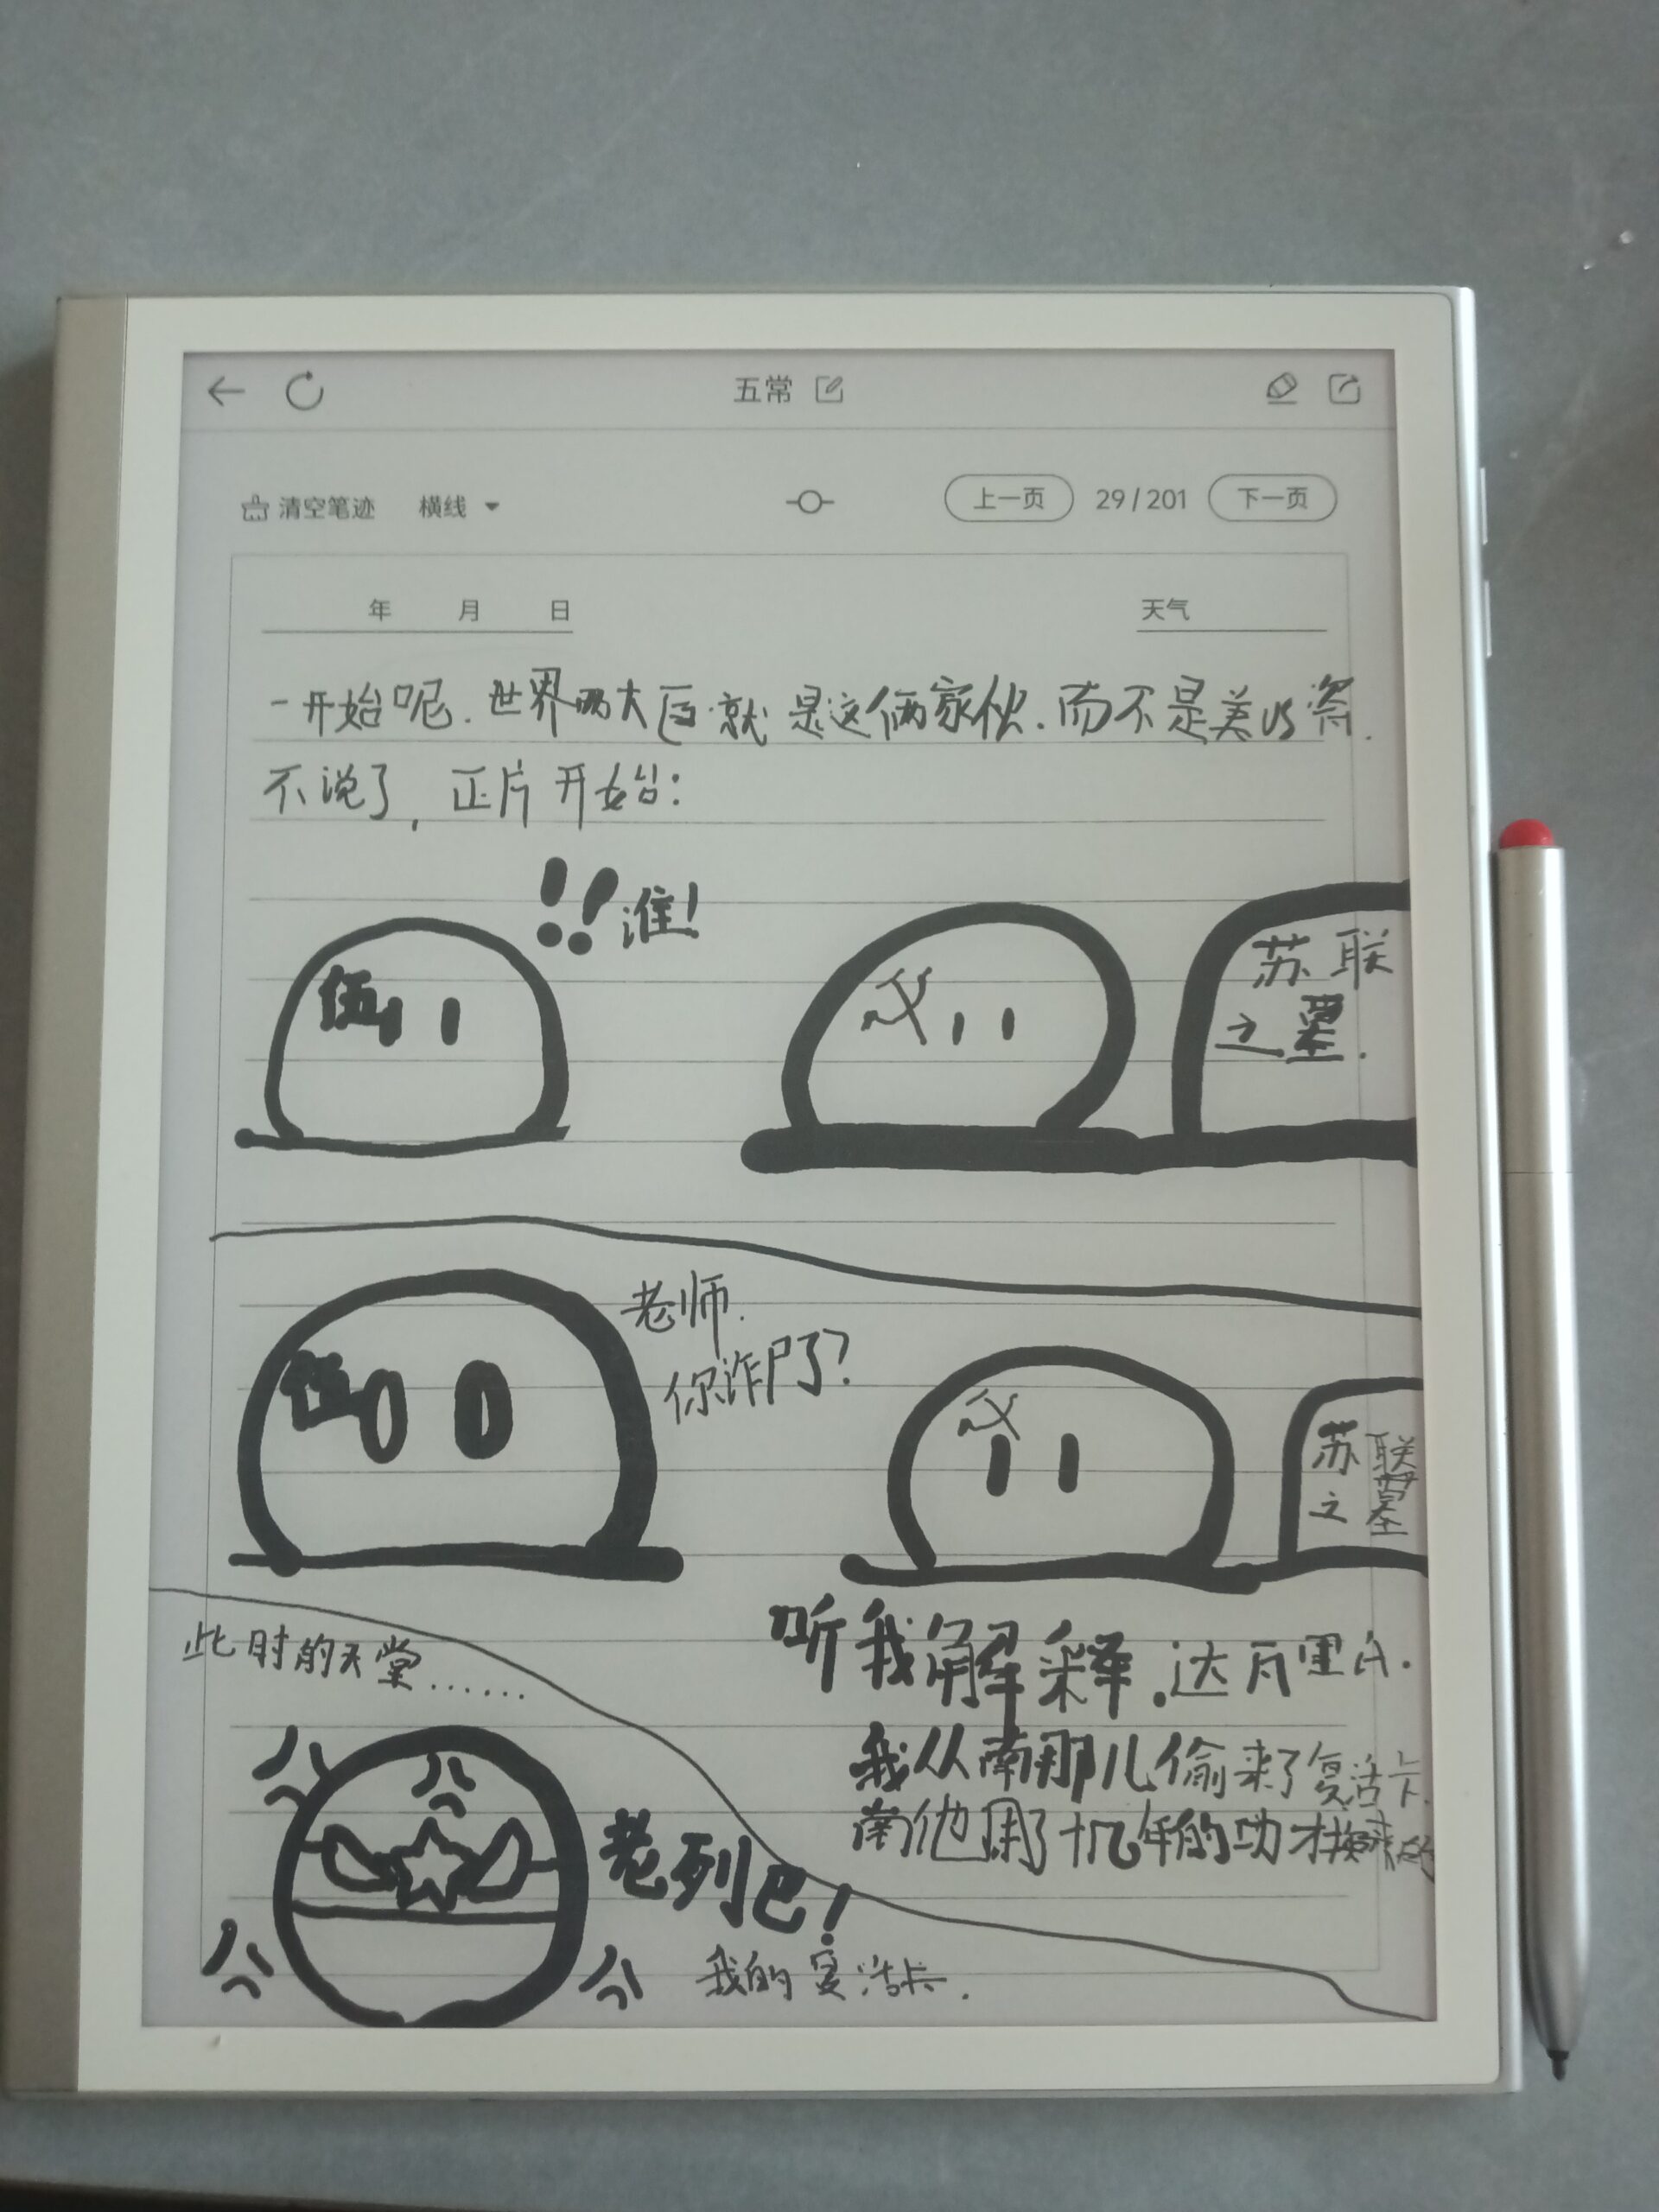 五常
清空笔迹 横线 上一页 29/201 下一页
年 月 日 天气
一开始呢.世界两大巨就是这俩家伙.而不是美us
不说了,正片开始:
!!谁!
伍
苏联
之墓.
老师.
你诈尸了?
伍
苏联
之墓
听我解释.达瓦里氏.
我从南那儿偷来了复活卡.
南他用了十几年的功才换来的
此时的天堂……
老列巴!
我的复活卡.